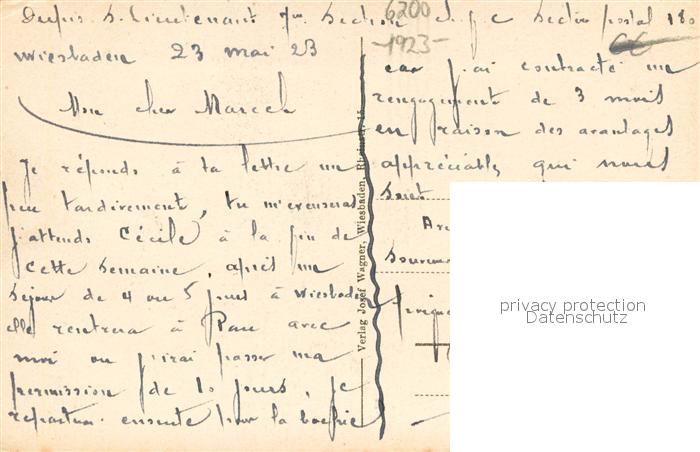 Dupuis S. Lieutenant Section Sector postal 180
6200
-1923-
Wiesbaden 23 mai 23
Mon cher Marcel
Je réponds à ta lettre un
peu tardivement, tu m'excuseras
j'attends Cécile à la fin de
cette semaine, après un
séjour de 4 ou 5 jours à Wiesbaden
elle rentrera à Pau avec
moi ou j'irai passer ma
permission de 10 jours, je
repartirai ensuite pour la
car j'ai contracté un
rengagement de 3 mois
en raison des avantages
appréciables qui nous
sont
Verlag Josef Wagner, Wiesbaden,
privacy protection
Datenschutz